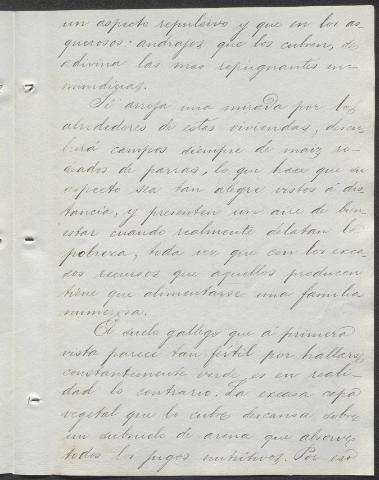 un aspecto repulsivo y que en los as-
querosos andrajos que los cubren, se
adivina las mas repugnantes in-
mundicias.
Si arroja una mirada por los
alrededores de estas viviendas, descu-
brirá campos siempre de maiz ro-
deados de parras, lo que hace que su
aspecto sea tan alegre vistos á dis-
tancia, y presenten un aire de bien-
estar cuando realmente delatan la
pobreza, toda vez que con los esca-
sos recursos que aquellos producen
tiene que alimentarse una familia
numerosa.
El suelo gallego que á primera
vista parece tan fértil por hallarse
constantemente verde, es en reali-
dad lo contrario. La escasa capa
vegetal que lo cubre descansa sobre
un subsuelo de arena que absorve
todos los jugos nutritivos. Por eso